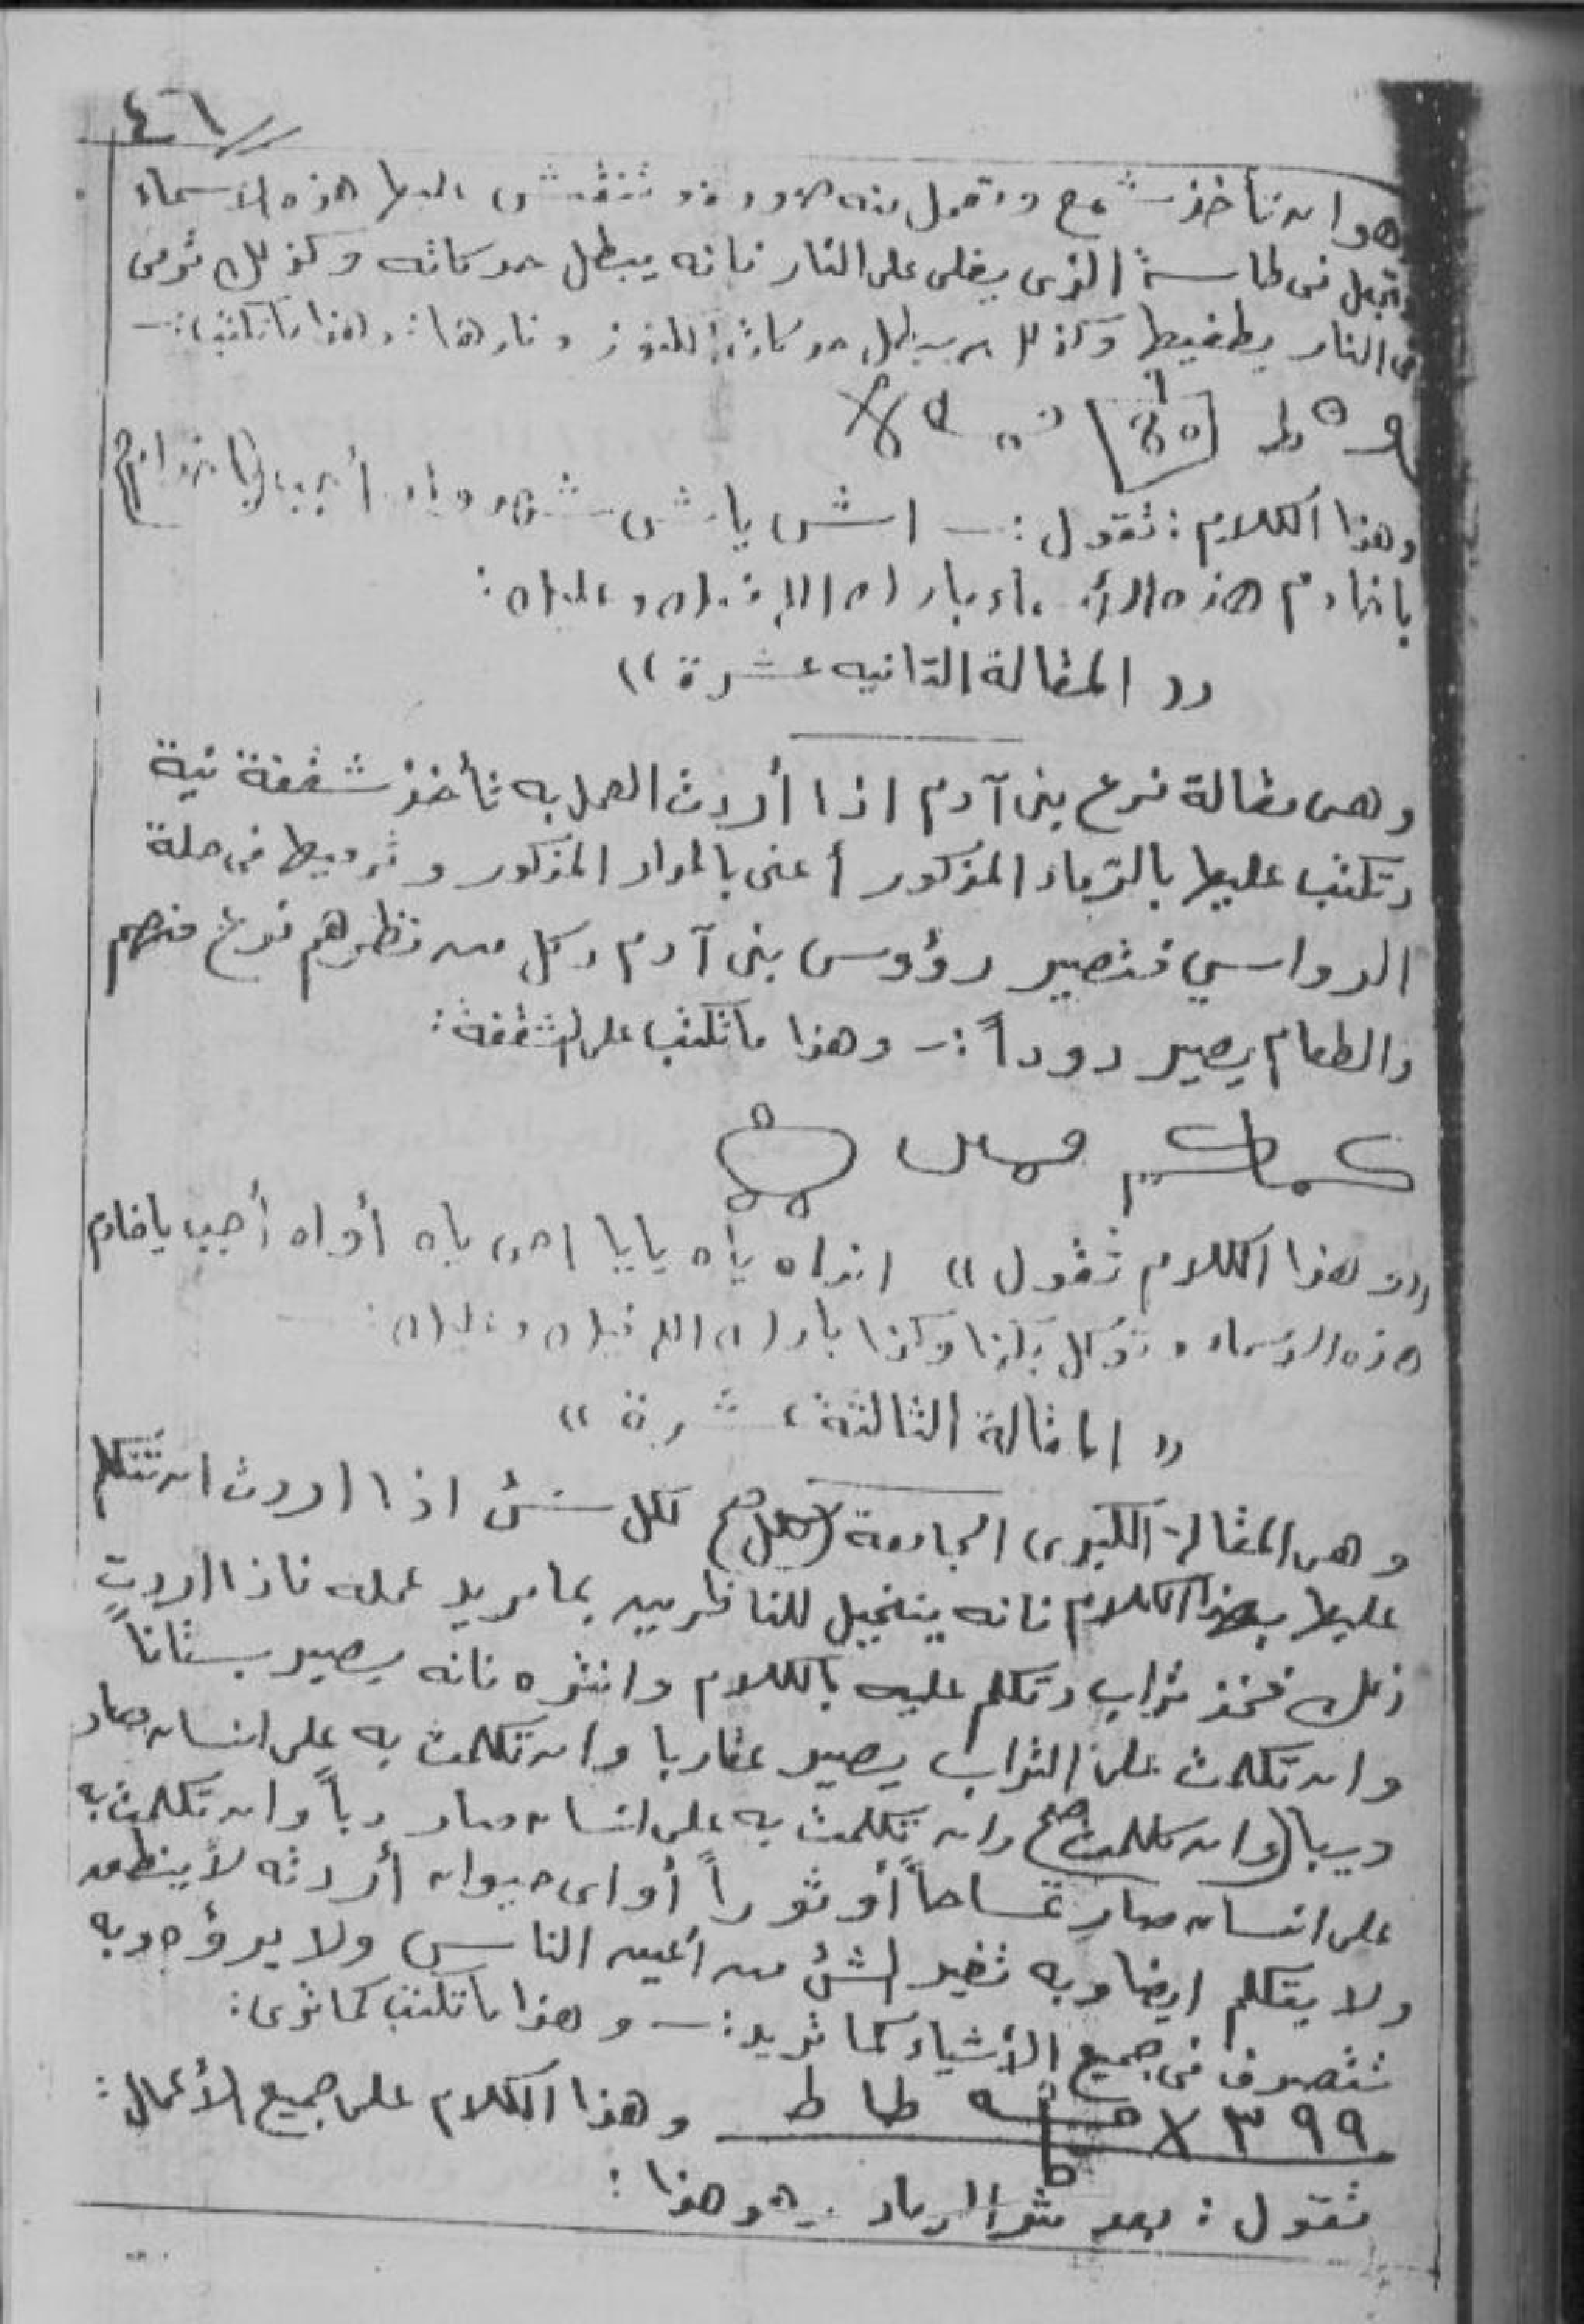 ٤٦
هو ان تأخذ شمع وتعمل منه صورة وتنقش عليها هذه الاسماء
وتجعل فى طاسة الذى يغلى على النار فانه يبطل حركاته وكذلك ترمى
فى النار يطفيها وكذلك يبطل حركات الكنوز ونارها : وهذا ما تكتب :-
وهذا الكلام : تقول :- اش ياش أجب يا خدام
يا خادم هذه الأسماء بارك الله فيك وعليك :
(( المقالة الثانيه عشرة ))
وهى مقالة فزع بنى آدم اذا أردت العمل به تأخذ شقفة نية
وتكتب عليها بالرماد المذكور أعنى بالمداد المذكور وترميها فى حلة
الرواسي فتصير رؤوس بنى آدم وكل من نظرهم فزع منهم
والطعام يصير دوداً :- وهذا ما تكتب على الشقفة :
((وهذا الكلام تقول )) ياه يايا ياه أواه أجب يا خادم
هذه الاسماء وتوكل بكذا وكذا بارك الله فيك وعليك :
(( المقالة الثالثة عشرة ))
وهى المقالة الكبرى الجامعة لكل شئ اذا اردت ان تتكلم
عليها بهذا الكلام فانه يتخيل للناظرين بما يريد عمله فاذا اردت
ذلك فخذ تراب وتكلم عليه بالكلام وانثره فانه يصير بستاناً
وان تكلمت على التراب يصير عقاربا وان تكلمت به على انسان صار
ديبا (وان تكلمت صح) وان تكلمت به على انسان صار دباً وان تكلمت به
على انسان صار تمساحاً أو ثوراً أو اى حيوان أردته لأينطمد
ولا يتكلم ايضا وبه تغير الشئ من أعين الناس ولا يروه وبه
تتصرف فى جميع الأشياء كما تريد :- وهذا ما تكتب كما ترى :
٩٩ ٣ X طا ط وهذا الكلام على جميع الأعمال :
تقول : بعد نثر الرماد وهو هذا :